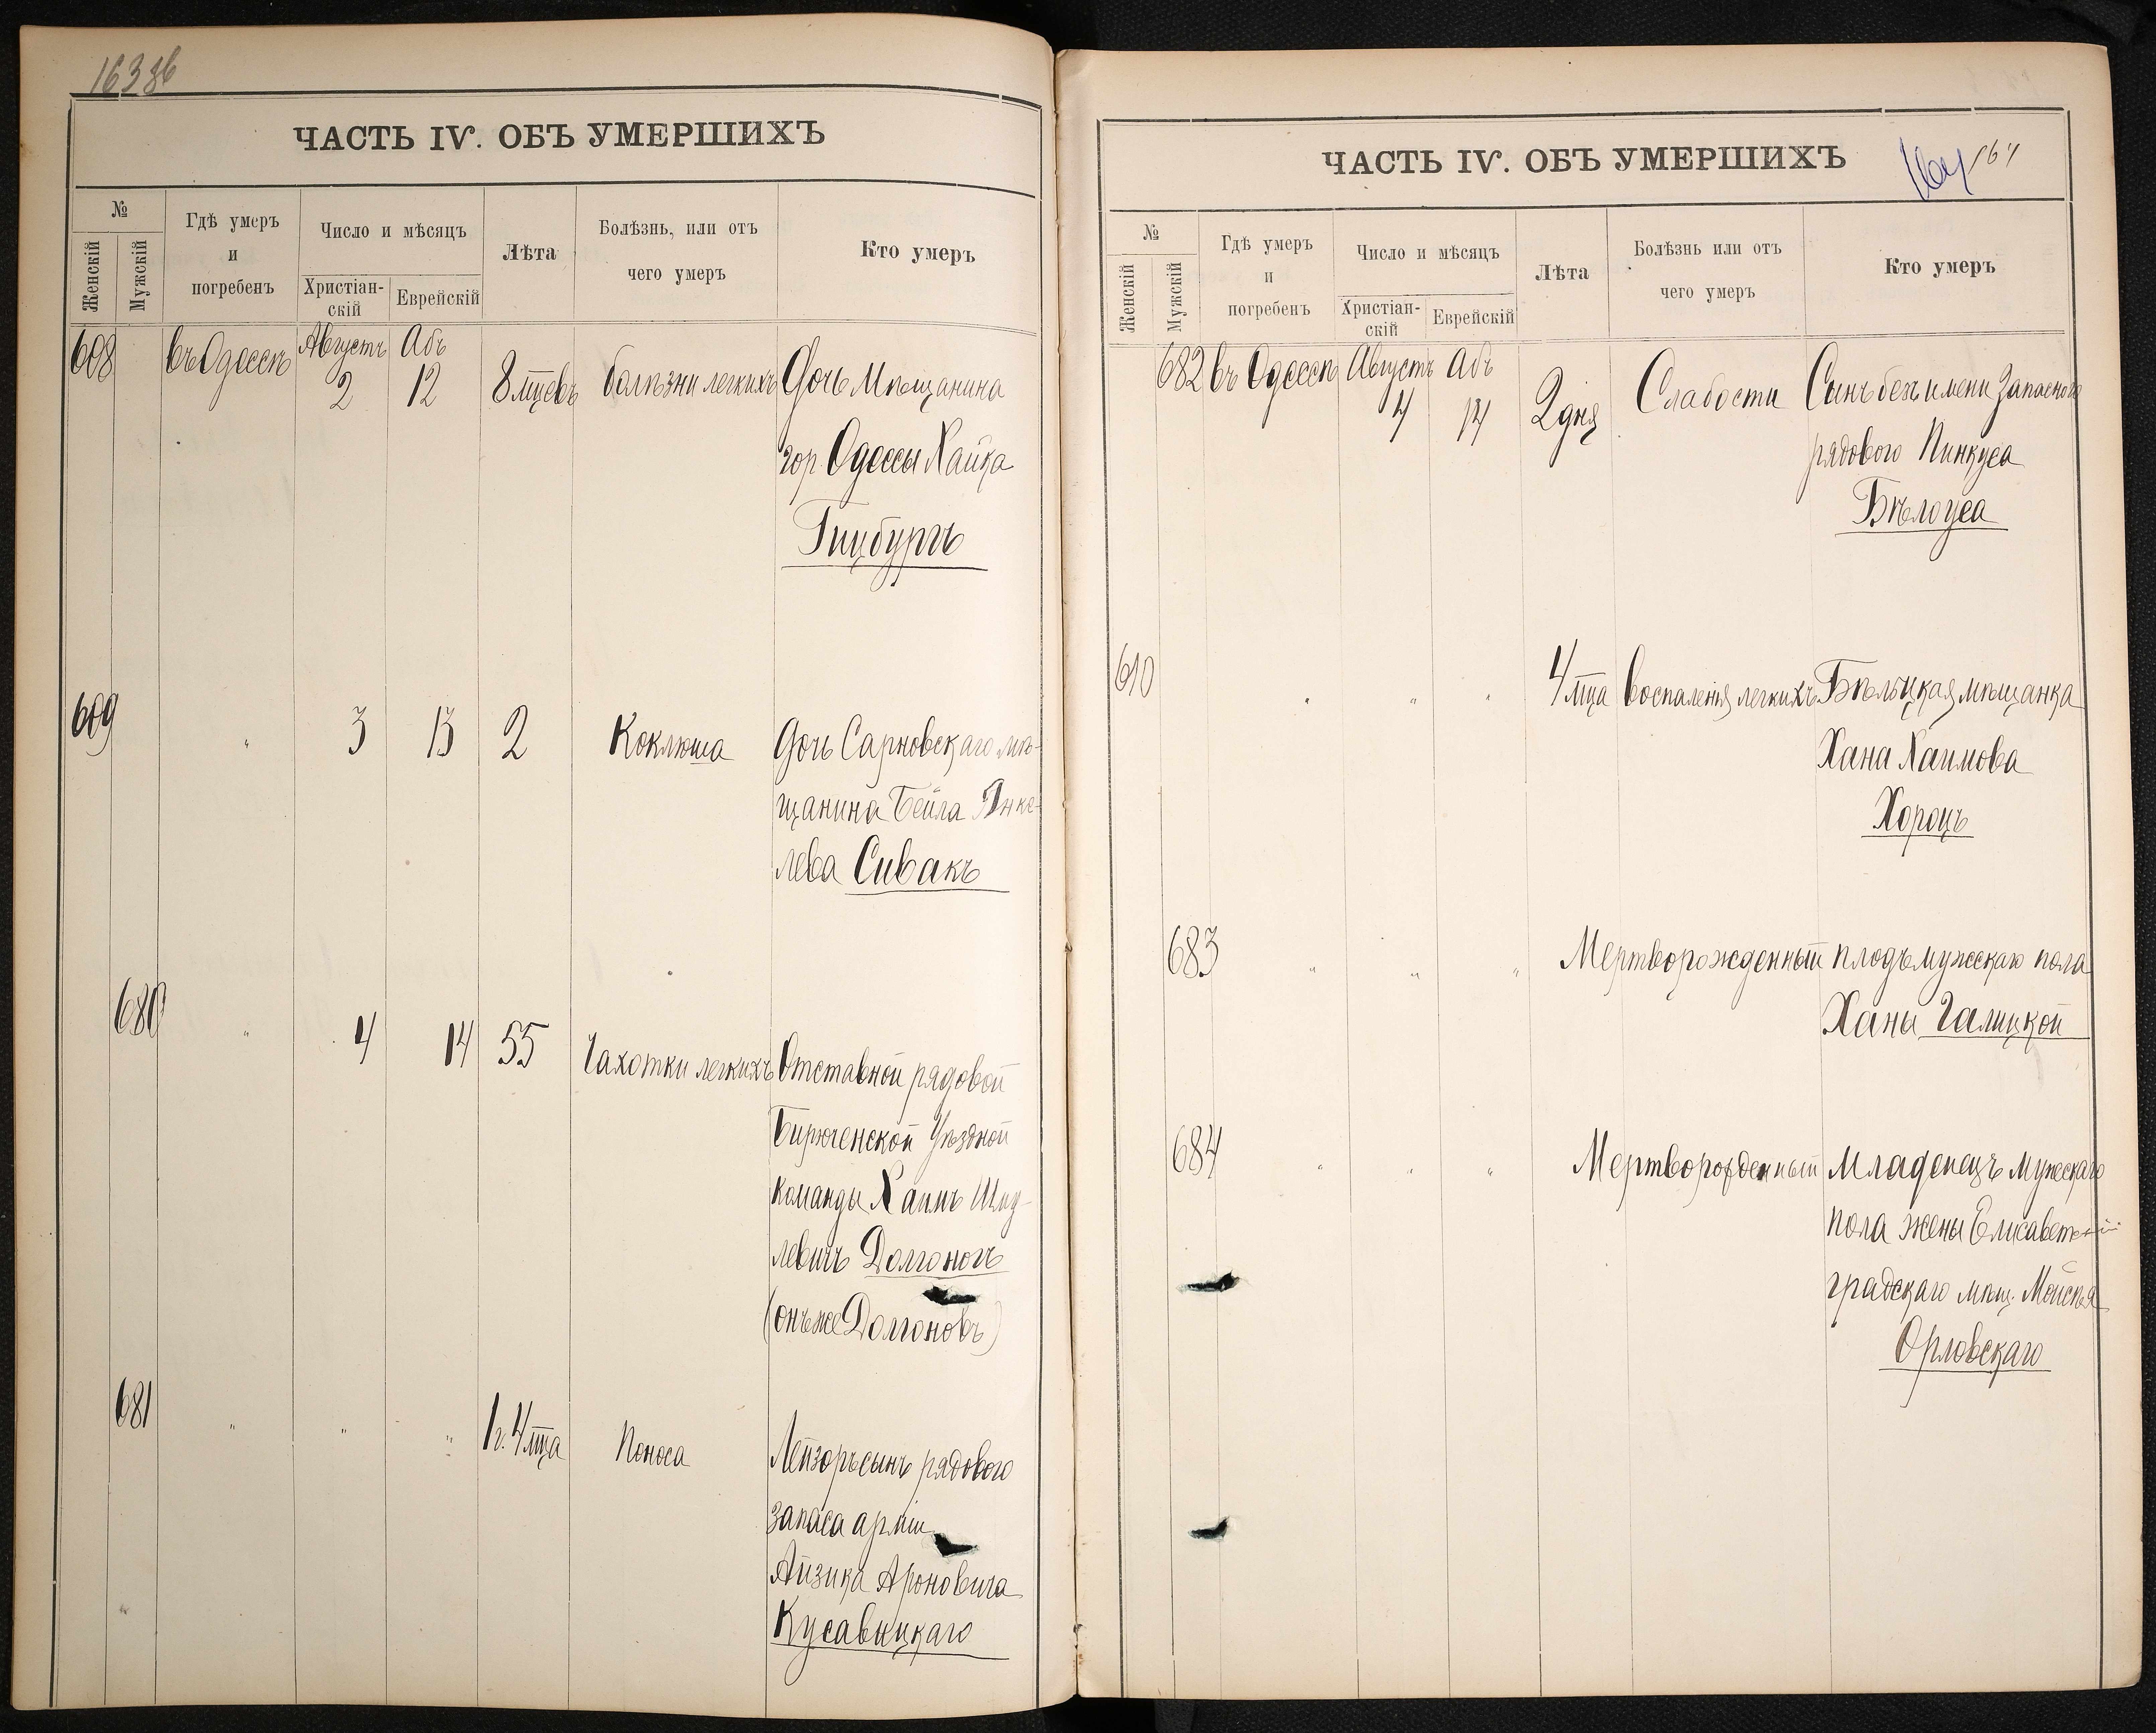 163 зв
ЧАСТЬ IV. ОБЪ УМЕРШИХЪ
№
Женскій
Мужскій
Гдѣ умеръ
и
погребенъ
Число и мѣсяцъ
Христіан-
скій
Еврейскій
Лѣта
Болѣзнь, или отъ
чего умеръ
Кто умеръ
608 въ Одессѣ Августъ 2 Абъ 12 8 мцевъ болѣзни легкихъ Дочь Мѣщанина
гор. Одессы Хайка
Гицбургъ
609 " 3 13 2 Коклюша Дочь Сарновскаго мѣ-
щанина Бейла Янке-
лева Сивакъ
680 " 4 14 55 Чахотки легкихъ Отставной рядовой
Бирюченской Уѣздной
команды Хаимъ Шмд-
левичъ Долгоногъ
(онъ же Долгоновъ)
681 " " " 1 г. 4 мца Поноса Лейзоръ сынъ рядового
запаса арміи
Айзика Ароновича
Кусавицкаго
ЧАСТЬ IV. ОБЪ УМЕРШИХЪ
164
164
№
Женскій
Мужскій
Гдѣ умеръ
и
погребенъ
Число и мѣсяцъ
Христіан-
скій
Еврейскій
Лѣта
Болѣзнь или отъ
чего умеръ
Кто умеръ
682 въ Одессѣ Августъ 4 Абъ 14 2 дня Слабости Сынъ безъ имени Запасного
рядового Пинкуса
Бѣлоуса
610 " " " 4 мца Воспаленія легкихъ Бѣльцкая мѣщанка
Хана Хаимова
Хороцъ
683 " " " Мертворожденный плодъ мужскаго пола
Ханы Галицкой
684 " " " Мертворожденный Младенецъ мужескаго
пола жены Елисавет
градскаго мѣщ. Мойсея
Орловскаго